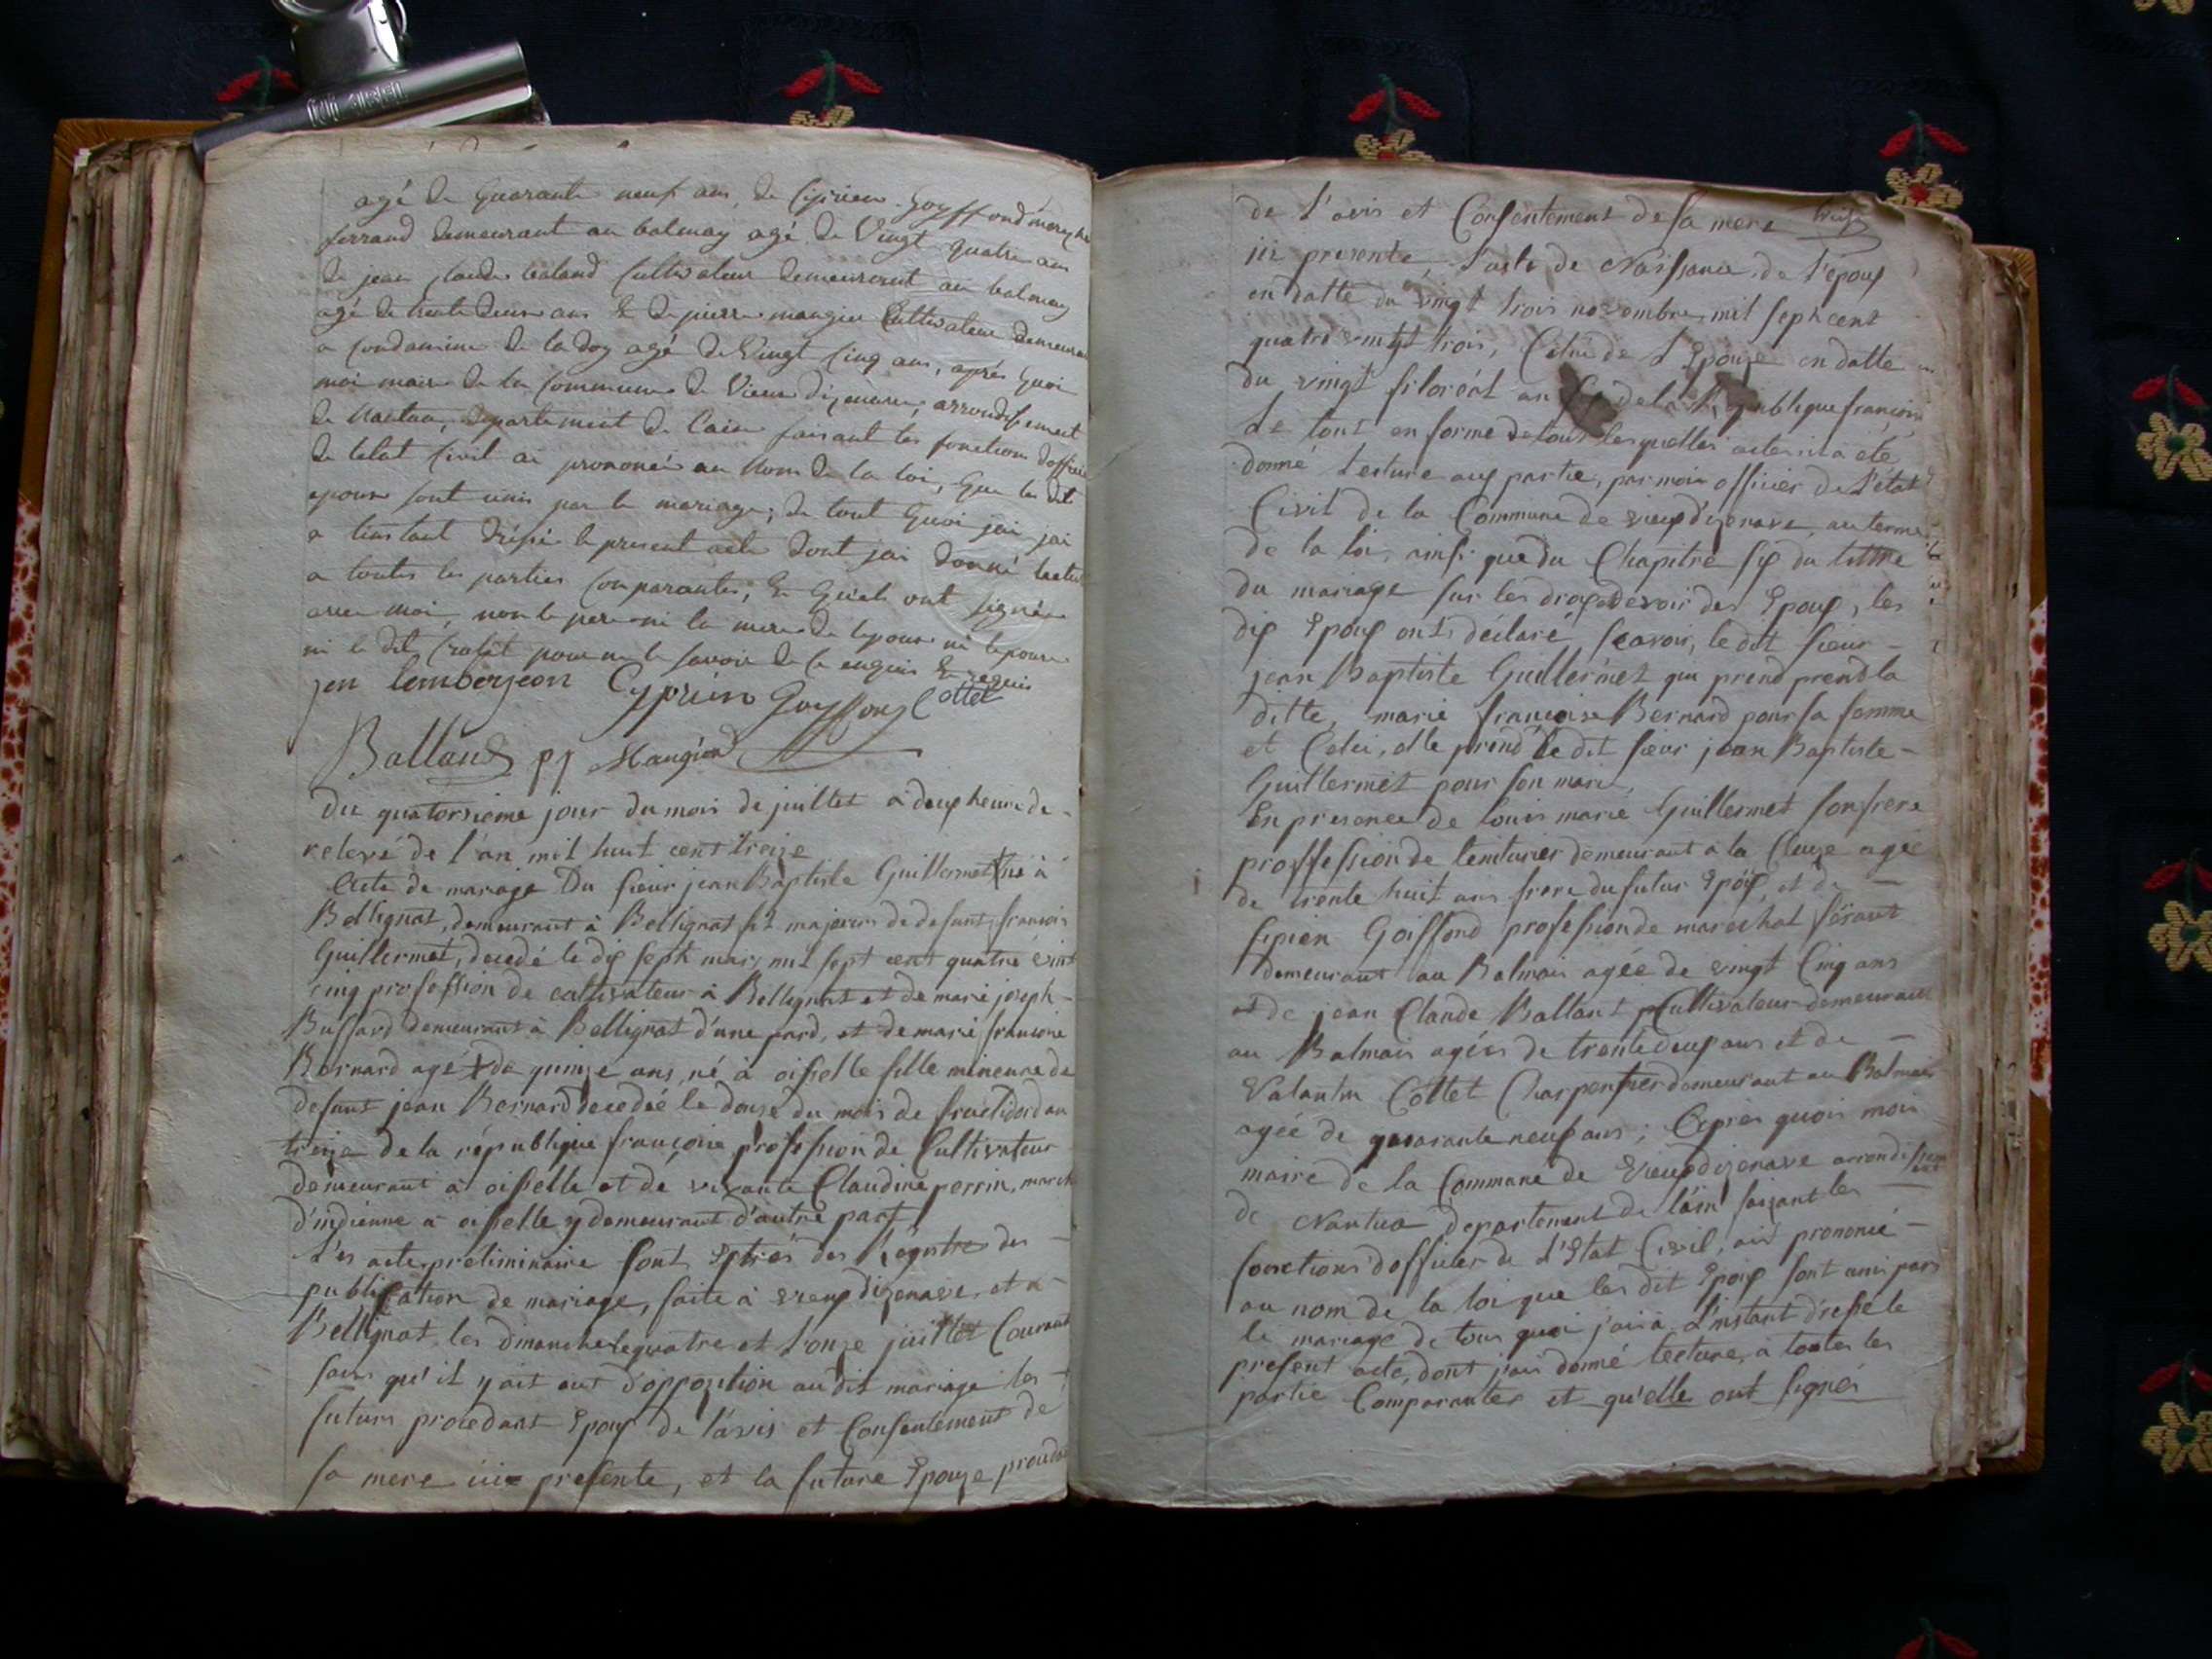 agé de Quarante neuf ans, de Ciprien Goyffond marech
ferrand demeurant au balmay agé de Vingt quatre ans
de jean claude baland Cultivateur demeurent au balmay
agé de trente deux ans & de pierre mangier Cultivateur demeuran
a Condamine de la doy agé de Vingt Cinq ans, après Quoi
moi maire de la Commune de Vieux dizenave, arrondissement
de Nantua, departement de l'ain faisant les fonction doffici
de l'etat Civil ai prononcé au Nom de la loi, Que les dit
epoux sont unis par le mariage; de tout Quoi jai jai
a linstant dréssé le present acte dont jai donné lectur
a toutes les parties Comparantes, & Quels ont signée
avec moi, non le pere ni la mere de lepouse ni lepouse
ni le dit pour ne le savoir de ce enquis & requis
jen lemberjeon Cyprien Goyffong Cottet
Balland pj Mangier
Du quatorsieme jour du mois de juillet a deux heure de -
relevé de l'an mil huit cent treize
Acte de mariage Du sieur jean Baptiste Guillermet né à
Bellignat, demeurant à Bellignat fils majeur de defunt francois
Guillermet, decedé le dix sept mars mil sept cent quatre vint
cinq profession de cultivateur à Bellignat et de marie joseph -
Buffard demeurant à Bellignat d'une pard, et de marie francoise
Bernard agé de quinze ans, né à oisselle fille mineure de
defunt jean Bernard decedéé le douze du mois de fructidord an
treize de la république françoise profession de Cultivateur
demeurant à oisselle et de vivante Claudine perrin, march
d'indienne à oisselle y demeurant d'autre part
Les acte preliminaire sont Extrés des Régistre des -
publication de mariage, faite à vieux dizenave, et à -
Bellignat les dimanche le quatre et l'onze juillet Courant
sans qu'il y ait eut d'opposition au dit mariage les -
futurs procedant Epoux de l'avis et Consentement de
sa mere icie presente, et la future Epouze procedan
treize
de l'avis et Consentement de sa mere
ici presente, l'acte de Naissance de l'époux
en datte du vingt trois novembre mil sept cent
quatre vingt trois, Celui de L'Epouse en datte
du vingt floréal an de la République françoise
Le tout en forme de tous lesquelles actes il a été
donné lecture aux partie, par moi officier de l'état
Civil de la Commune de vieux d'izenave, au terme
de la loi, ainsi que du Chapitre six du tittre
du mariage sur les drois devoir des Epoux, les
dis Epoux ont déclaré scavoir, le dit sieur -
jean Baptiste Guillermet qui prend prend la
ditte, marie francoise Bernard pour sa femme
et Celei, elle prend le dit sieur jean Baptiste -
Guillermet pour son mari,
En presence de louis marie Guillermet son frere
proffession de teinturier demeurant a la Cluze agée
de trente huit ans frere du futur Epoux, et de -
sipien Goiffond profession de marechal férant
demeurant au Balmais agée de vingt Cinq ans
et de jean Claude Ballant Cultivateur demeurant
au Balmais agées de trente deux ans et de -
Valantin Cottet Charpentier demeurant au Balmais
agée de quarante neuf ans; Après quois mois
maire de la Commune de Vieux dizenave arrondissement
de Nantua departement de l'ain faisant les -
fonctions d'officier de L'Etat Civil, ait prononcé -
au nom de la loi que les dit Epoux sont unis par
le mariage de tous quoi j'ai a L'instant dréssé le
present acte, dont j'ais donné lecture, à toutes les
partie Comparantes et qu'elle ont signés